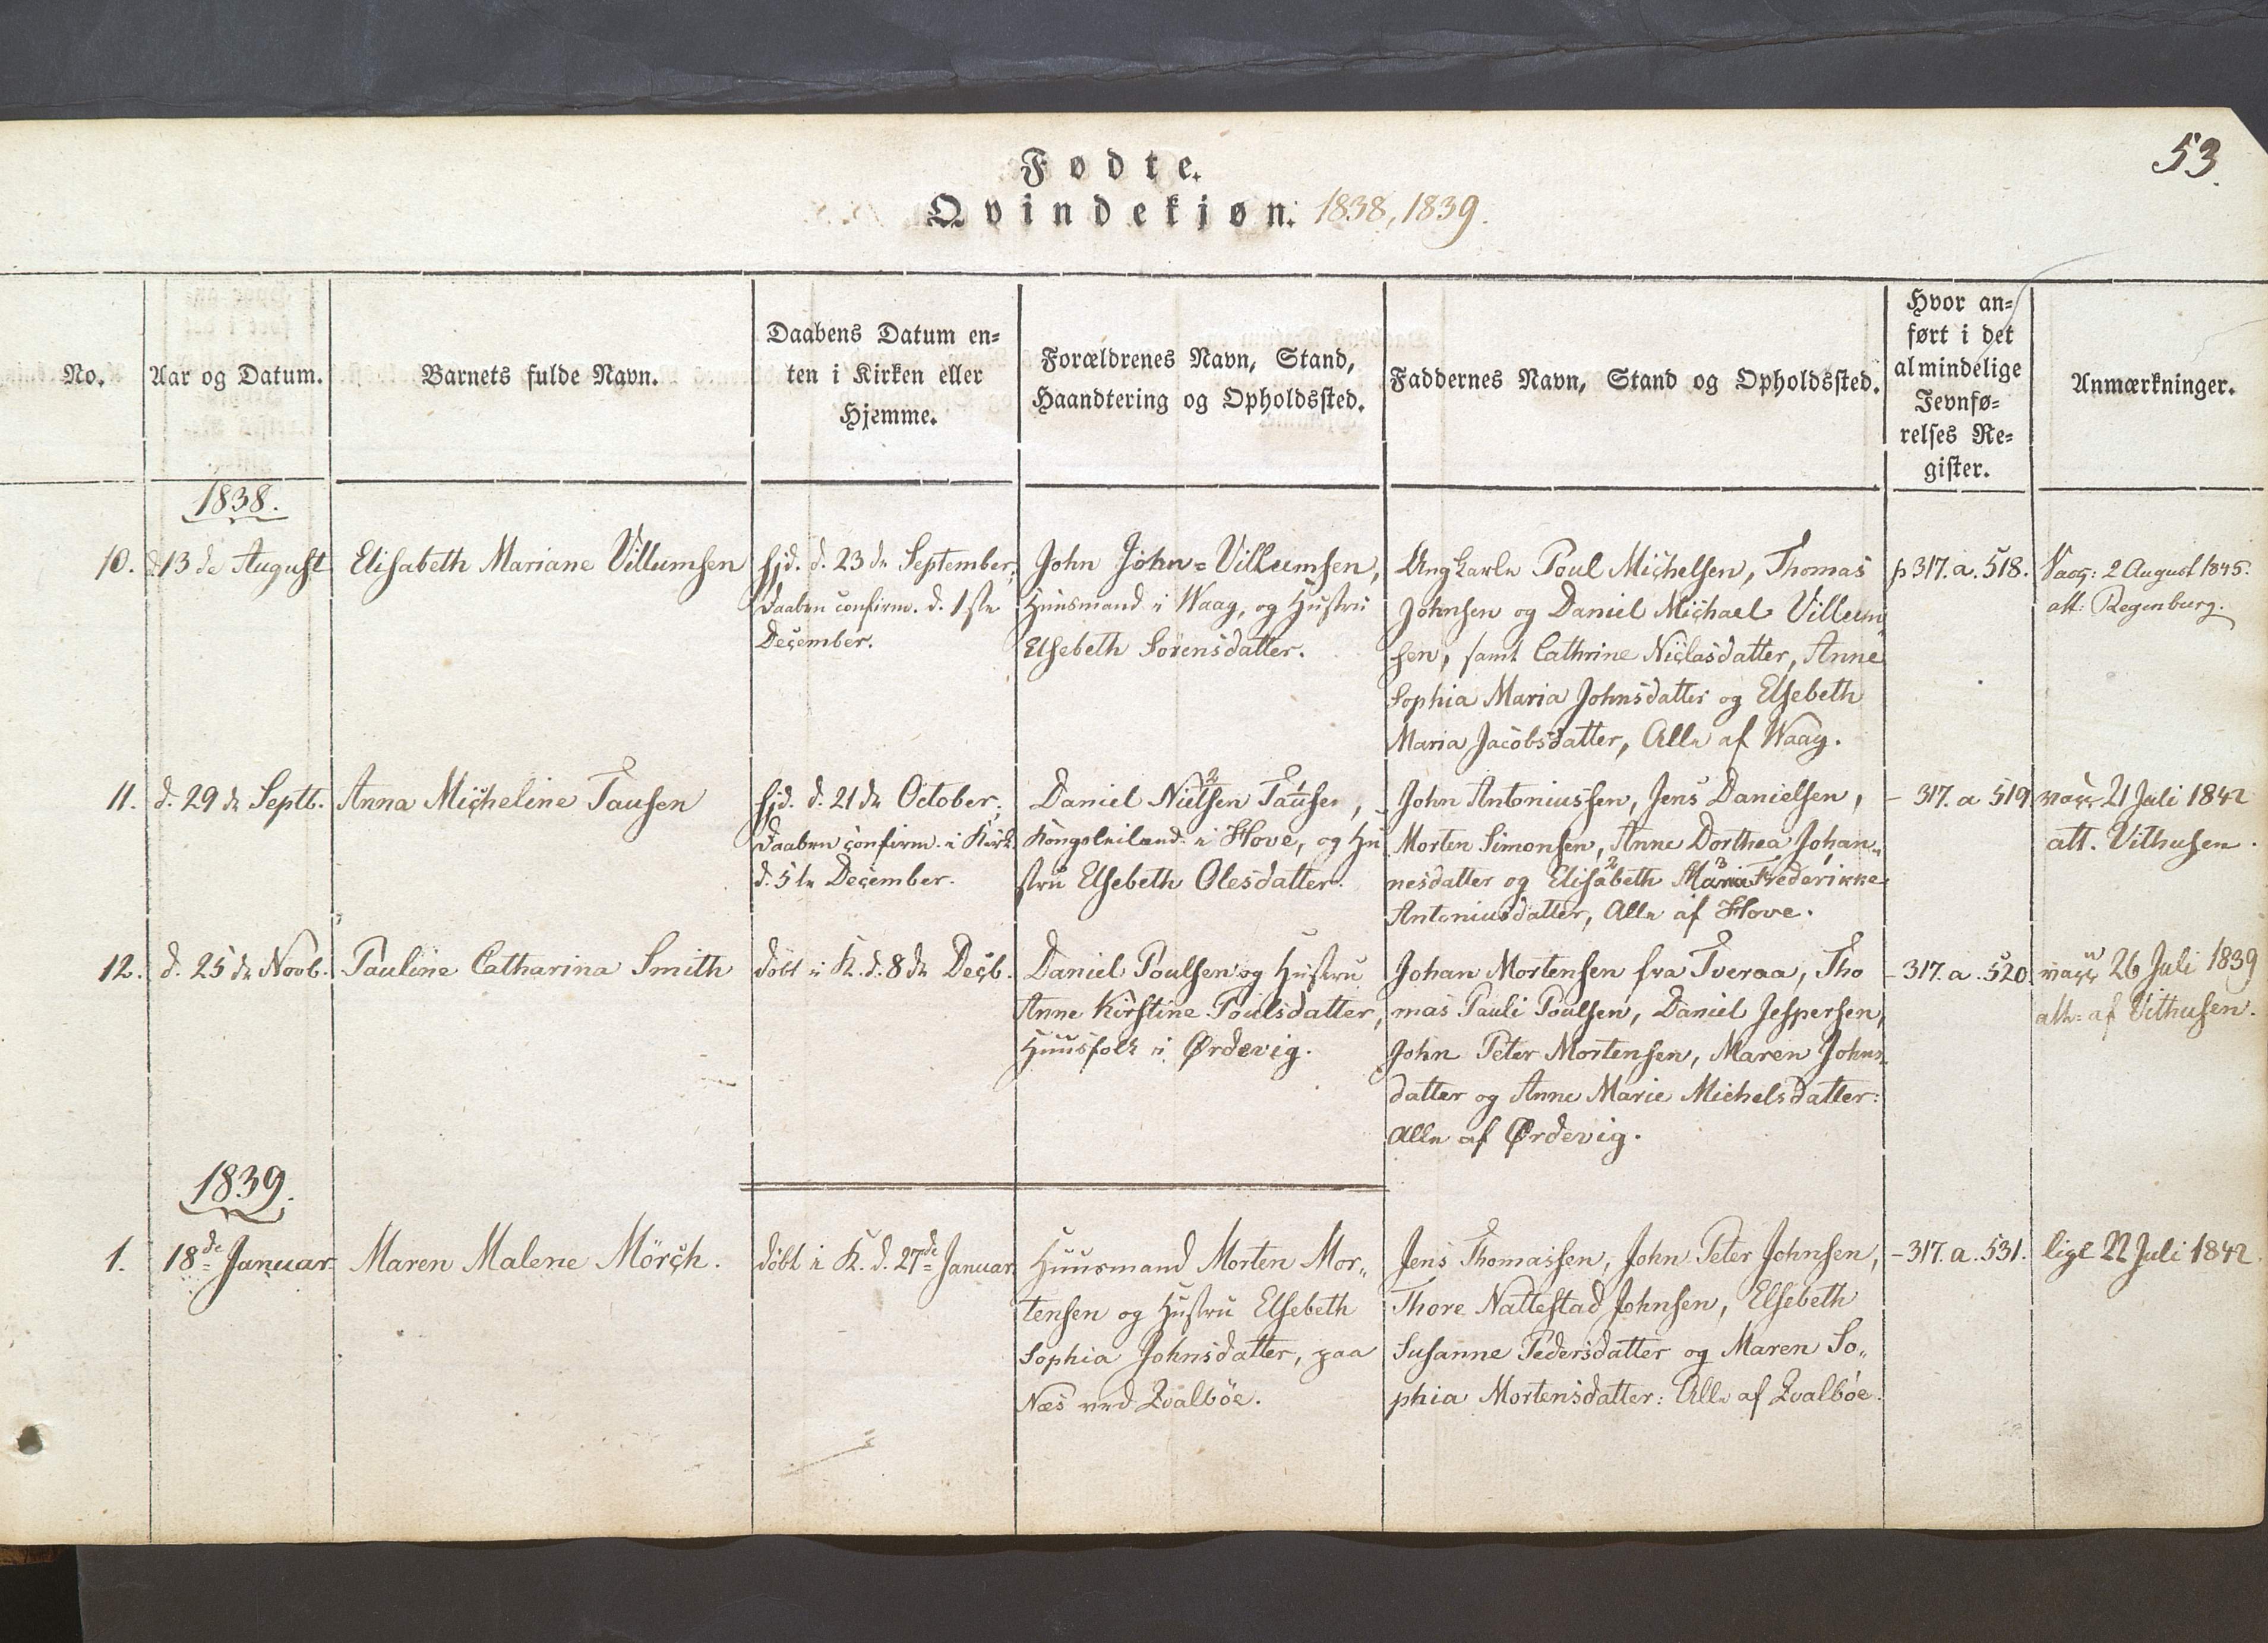 53.
Fødte.
Qvindekjøn. 1838, 1839.
No.
Aar og Datum.
Barnets fulde Navn.
Daabens Datum en=
ten i Kirken eller
Hjemme.
Forældrenes Navn, Stand,
Haandtering og Opholdssted.
Faddernes Navn, Stand og Opholdssted.
Hvor an=
ført i det
almindelige
Jevnfø=
relses Re=
gister.
Anmærkninger.
1838.
10.
d. 13de August
Elisabeth Mariane Villumsen
hjd. d. 23de September,
Daaben confirm. d. 1ste
December.
John John=Villumsen,
Huusmand i Waag, og Hustru
Elsebeth Sörensdatter.
Ungkarle Poul Michelsen, Thomas
Johnsen og Daniel Michael Villum„
sen, samt Cathrine Niclasdatter, Anne
Sophia Maria Johnsdatter og Elsebeth
Maria Jacobsdatter, Alle af Waag.
p 317. a. 518.
Vacc: 2 August 1845.
att: Regenburg.
11.
d. 29de Septb.
Anna Micheline Tausen
hjd. d. 21de October,
Daaben confirm. i Kirk
d. 5te December.
Daniel Nielsen Tausen,
Kongsleiland. i Hove, og Hu
stru Elsebeth Olesdatter.
John Antoniussen, Jens Danielsen,
Morten Simonsen, Anne Dorthea Johan„
nesdatter og Elisabeth Maria Frederikke
Antoniusdatter, Alle af Hove.
- 317. a 519
vacc 21 Juli 1842
att. Vithusen.
12.
d. 25de Novb.
Pauline Catharina Smith
döbt i K. d. 8de Decb.
Daniel Poulsen og Hustru
Anne Kirstine Poulsdatter,
Huusfolk i Ørdevig.
Johan Mortensen fra Tveraa, Tho
mas Pauli Poulsen, Daniel Jespersen,
John Peter Mortensen, Maren Johns„
datter og Anne Marie Michelsdatter:
Alle af Ørdevig.
- 317. a. 520.
vacc 26 Juli 1839
att: af Vithusen.
1839.
1.
18de Januar
Maren Malene Mörch.
döbt i K. d. 27de Januar
Huusmand Morten Mor„
tensen og Hustru Elsebeth
Sophia Johnsdatter, paa
Næs ved Qvalböe.
Jens Thomassen, John Peter Johnsen,
Thore Nattestad Johnsen, Elsebeth
Susanne Pedersdatter og Maren So„
phia Mortensdatter: Alle af Qvalböe.
- 317. a. 531.
lige 22 Juli 1842